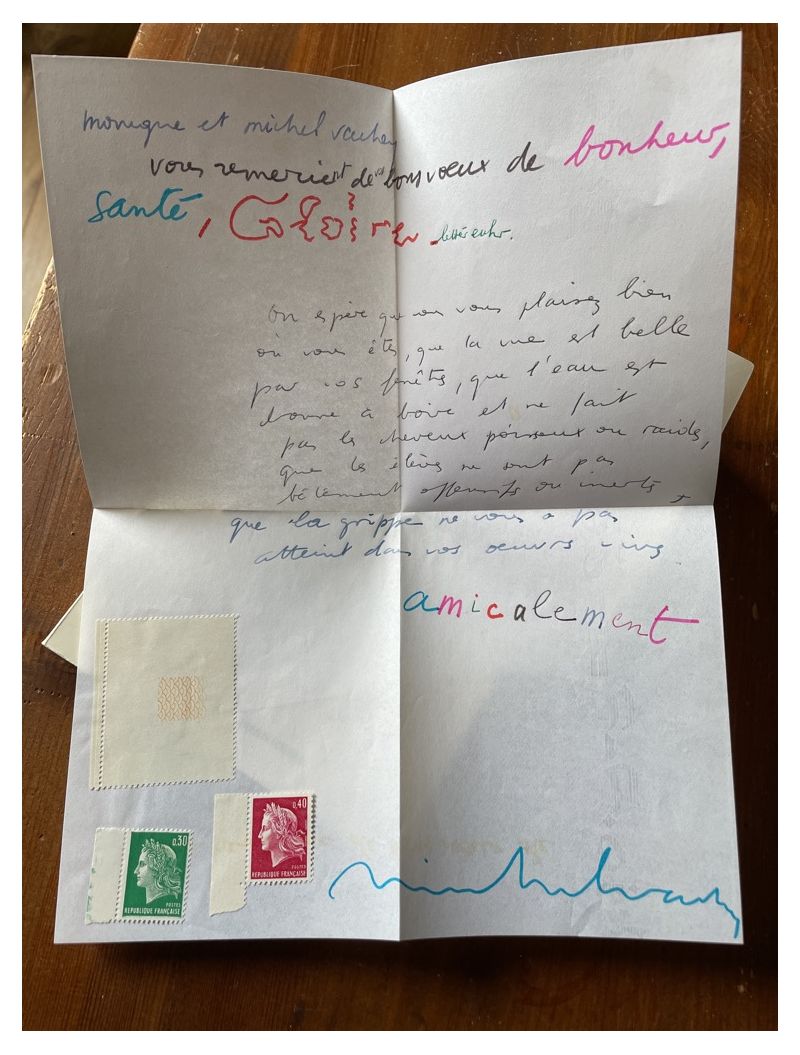 monique et michel vachey
vous remercient de vos bons voeux de bonheur,
santé, Gloire littéraire.
On espère que vous vous plaisez bien
où vous êtes, que la vue est belle
par vos fenêtres, que l'eau est
bonne à boire et ne fait
pas les cheveux poisseux ou raides,
que les élèves ne sont pas
bêtement offensifs ou inertes,
que la grippe ne vous a pas
atteint dans vos oeuvres vives.
amicalement
michel vachey
0,40
POSTES
REPUBLIQUE FRANÇAISE
0,30
POSTES
REPUBLIQUE FRANÇAISE